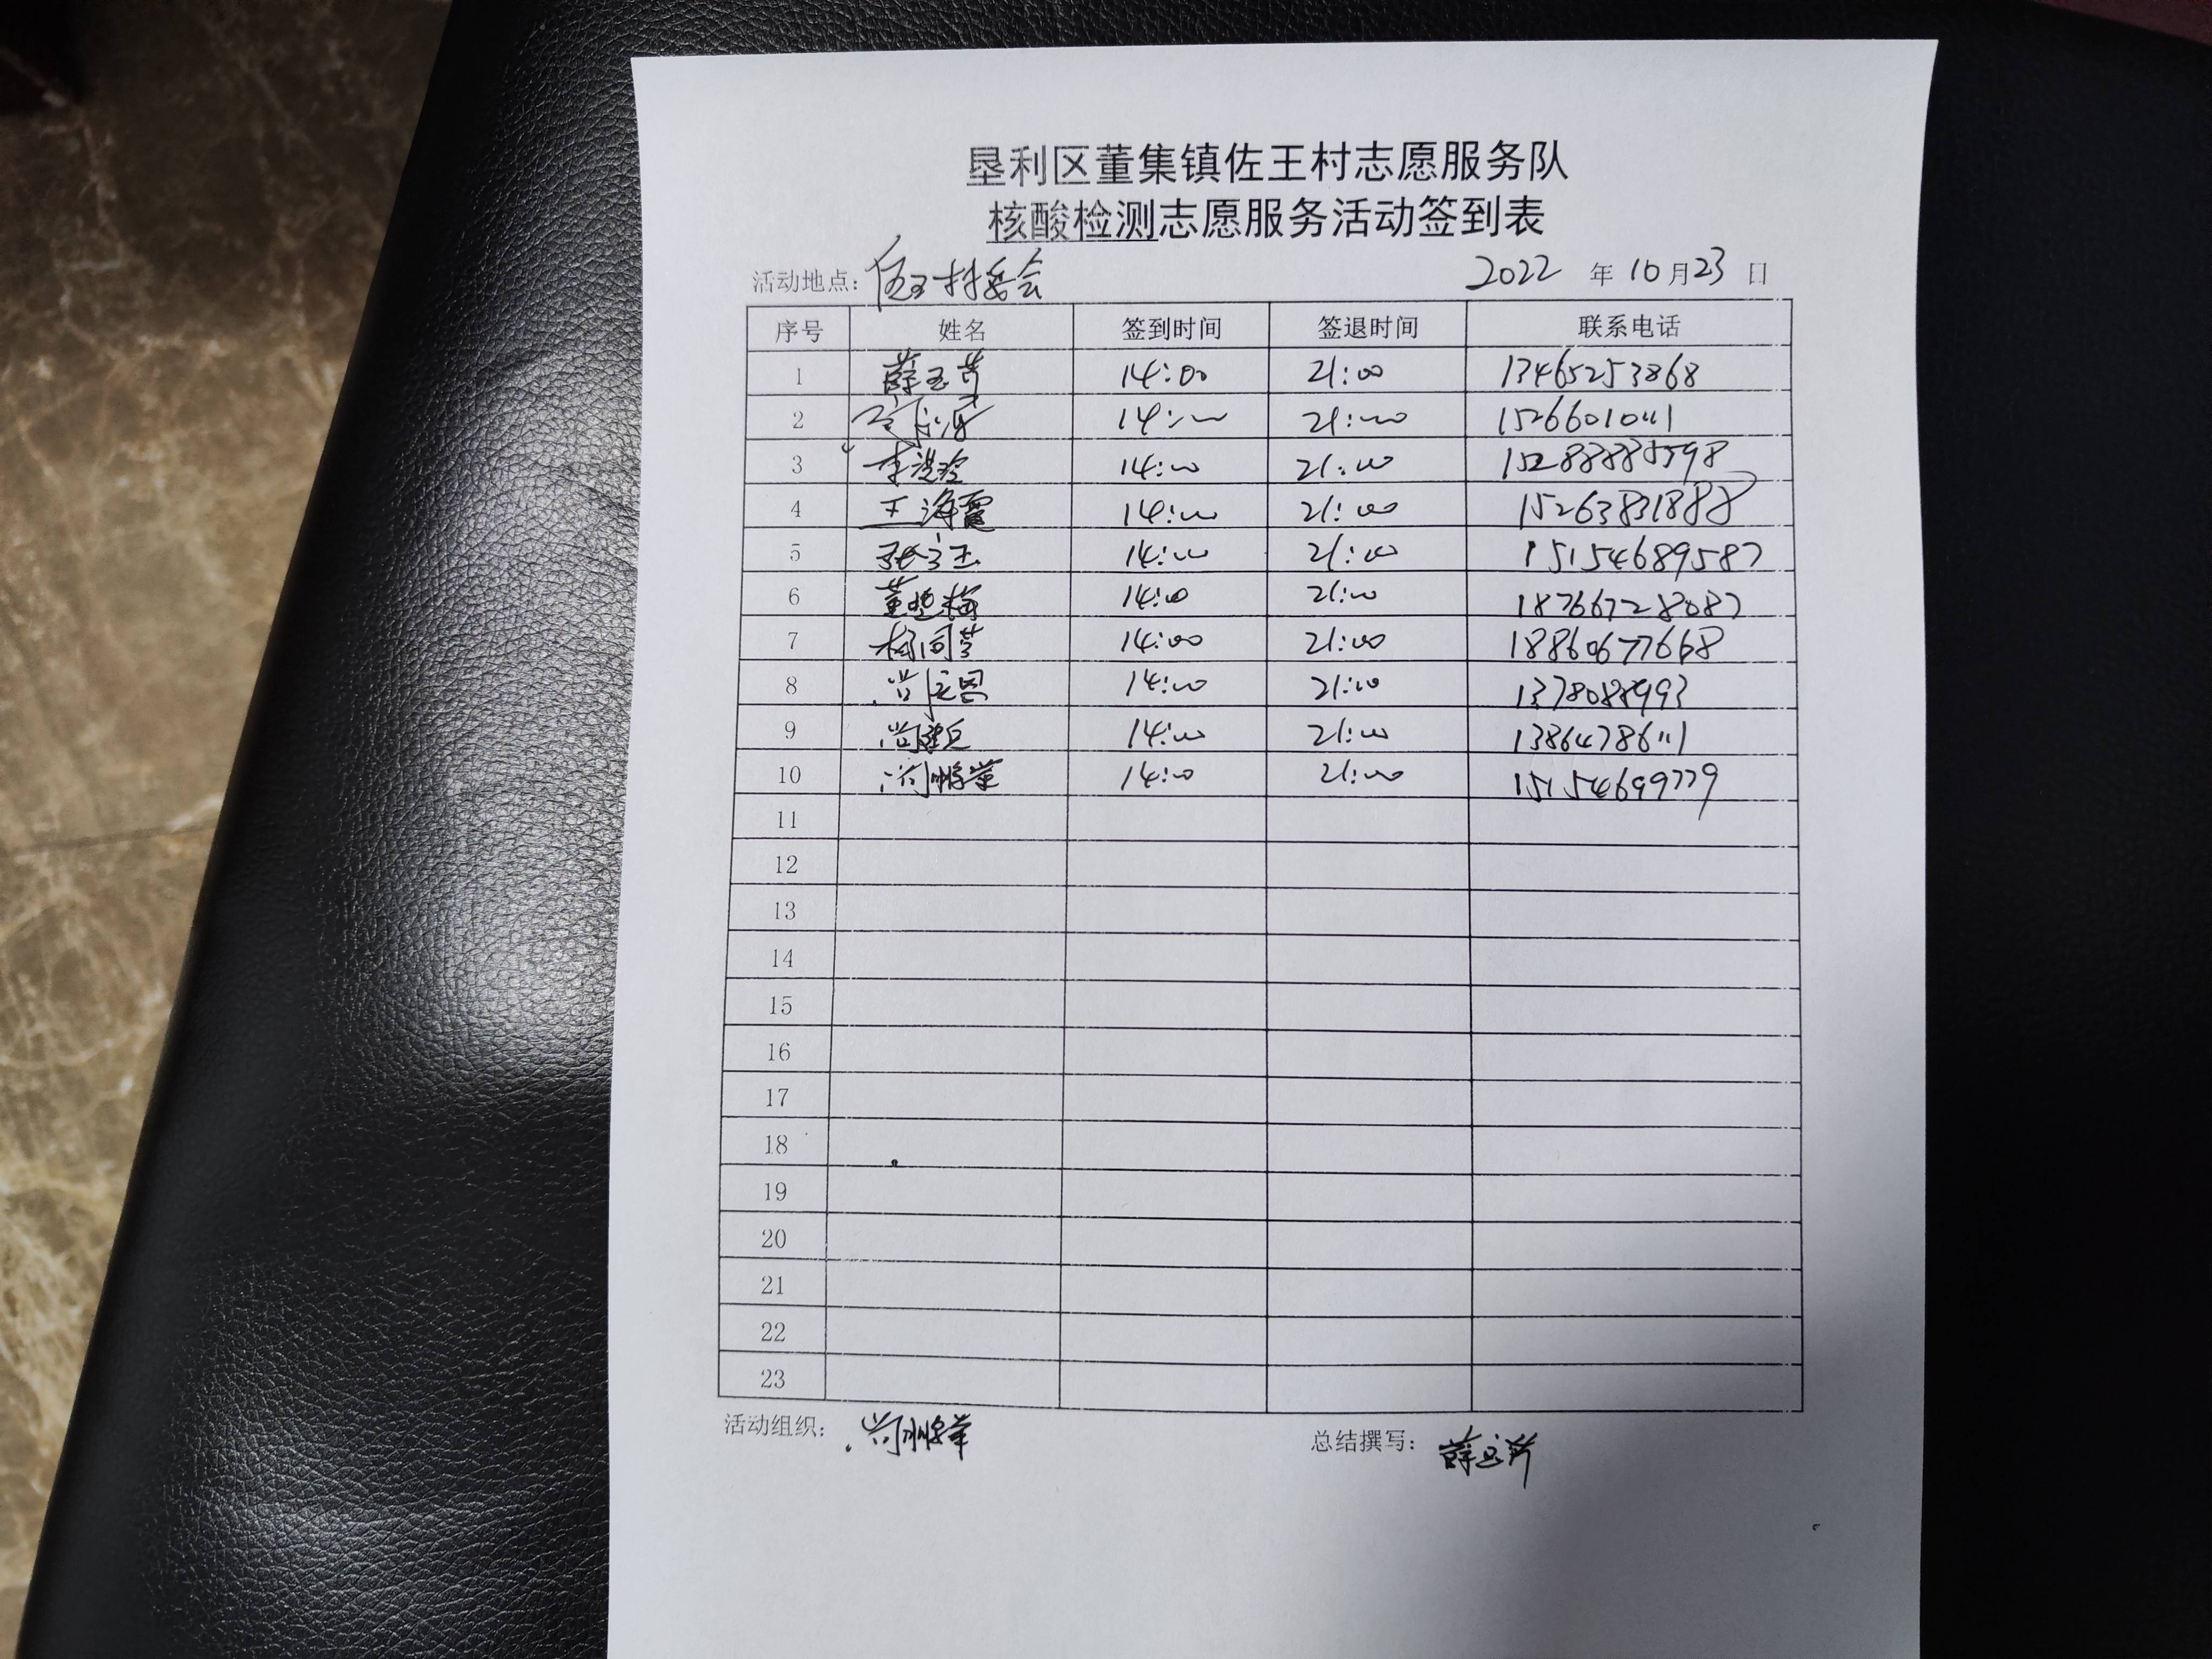 垦利区董集镇佐王村志愿服务队
核酸检测志愿服务活动签到表
活动地点：佐王村委会 2022 年 10 月 23 日
序号 姓名 签到时间 签退时间 联系电话
1 薛玉芳 14:00 21:00 13465253868
2 14:00 21:00
3 14:00 21:00 15288888598
4 王海霞 14:00 21:00 15263831888
5 14:00 21:00 15154689587
6 14:00 21:00 18766728087
7 14:00 21:00 18860677668
8 14:00 21:00
9 尚建兵 14:00 21:00
10 尚鹏举 14:00 21:00 15154699779
11
12
13
14
15
16
17
18
19
20
21
22
23
活动组织：尚鹏举 总结撰写：薛玉芳